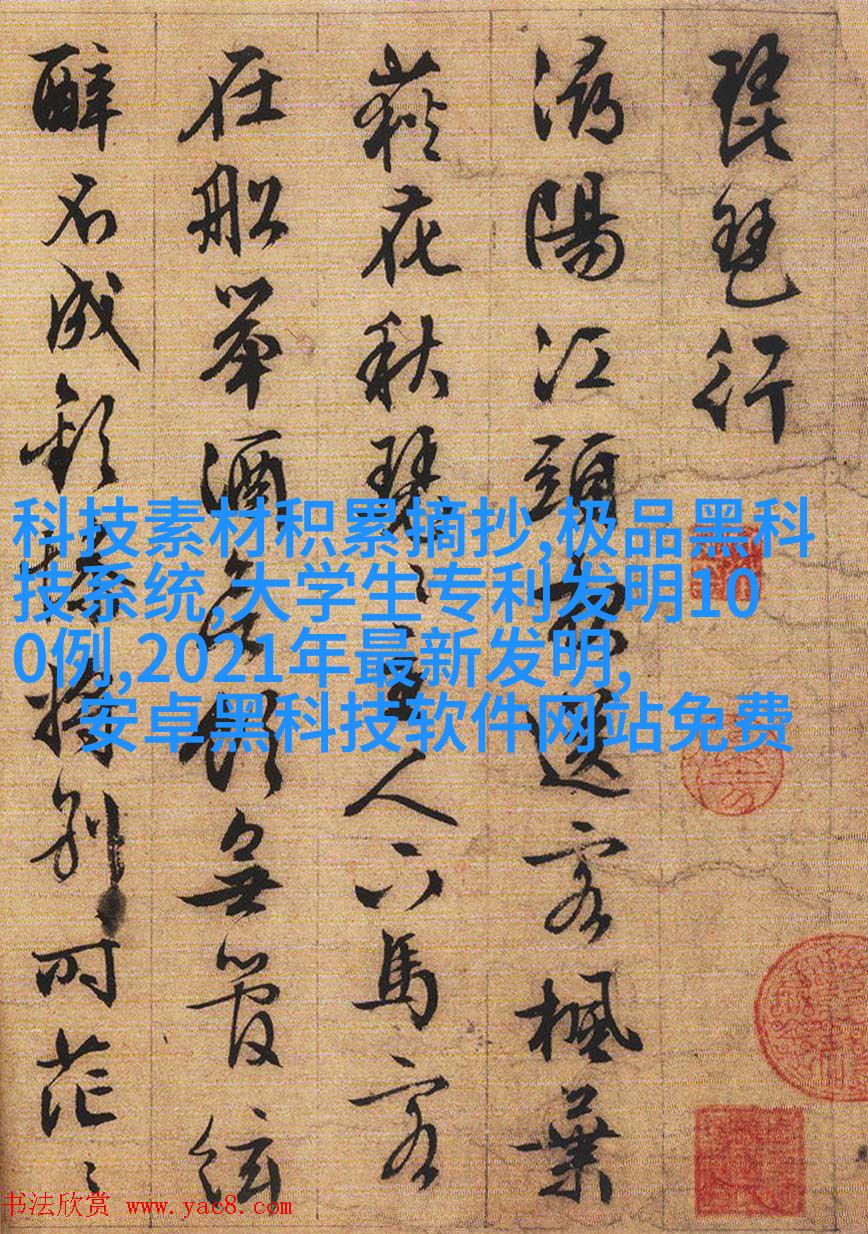 琵琶行
潯陽江頭夜送客楓葉
荻花秋瑟〻主人下馬客
在船舉酒欲飲無管絃
醉不成歡慘將別時茫〻
科技素材积累摘抄,极品黑科
技系统,大学生专利发明10
0例,2021年最新发明,
安卓黑科技软件网站免费
书法欣赏 www.yac8.com